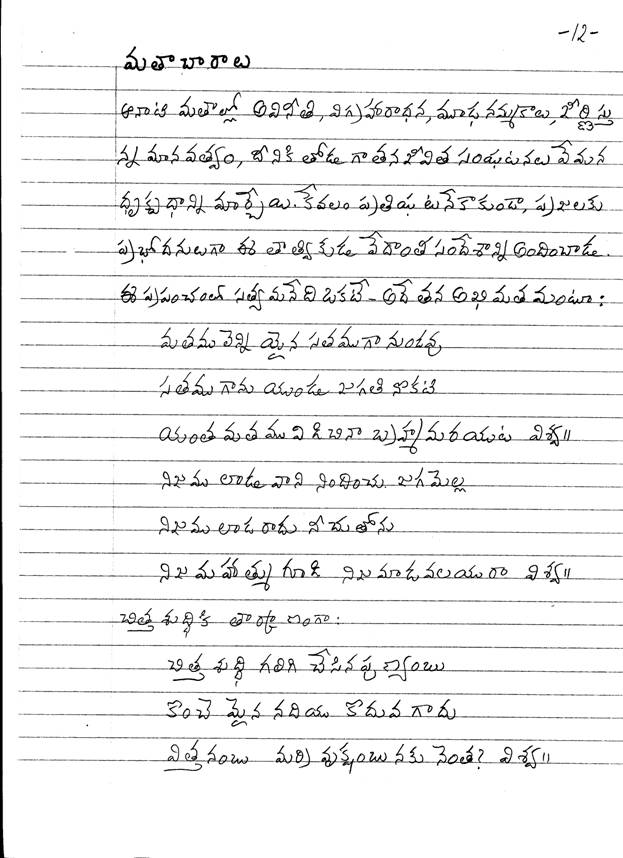 -12-
మతాచారాలు
ఆనాటి మతాల్లో అవినీతి, విగ్రహారాధన, మూఢనమ్మకాలు, జీర్ణిస్తు
న్న మానవత్వం, దీనికి తోడు గా తన జీవిత సంఘటనలు వేమన
దృక్పధాన్ని మార్చాయి. కేవలం ప్రతిఘటనేకాకుండా, ప్రజలకు
ప్రభోదనలుగా ఈ తాత్వికుడు వేదాంత సందేశాన్ని అందించాడు.
ఈ ప్రపంచంలో సత్యమనేది ఒకటే - అదే తన అభిమతమంటూ:
మతము లెన్ని యైన సతముగా నుండవు
సతము గాను యుండు జగతి నొకటి
యంత మతము విడిచినా బ్రహ్మమరయుట విశ్వ॥
నిజము లాడు వాని నిందించు జగమెల్ల
నిజము లాడ రాదు నీచుతోను
నిజ మహాత్ము గూడి నిజమాడవలయురా విశ్వ॥
చిత్త శుద్ధికి తార్కాణంగా:
చిత్త శుద్ధి గలిగి చేసిన పుణ్యంబు
కొంచె మైన నదియు కొదువ గాదు
విత్తనంబు మర్రి వృక్షంబునకు నెంత? విశ్వ॥